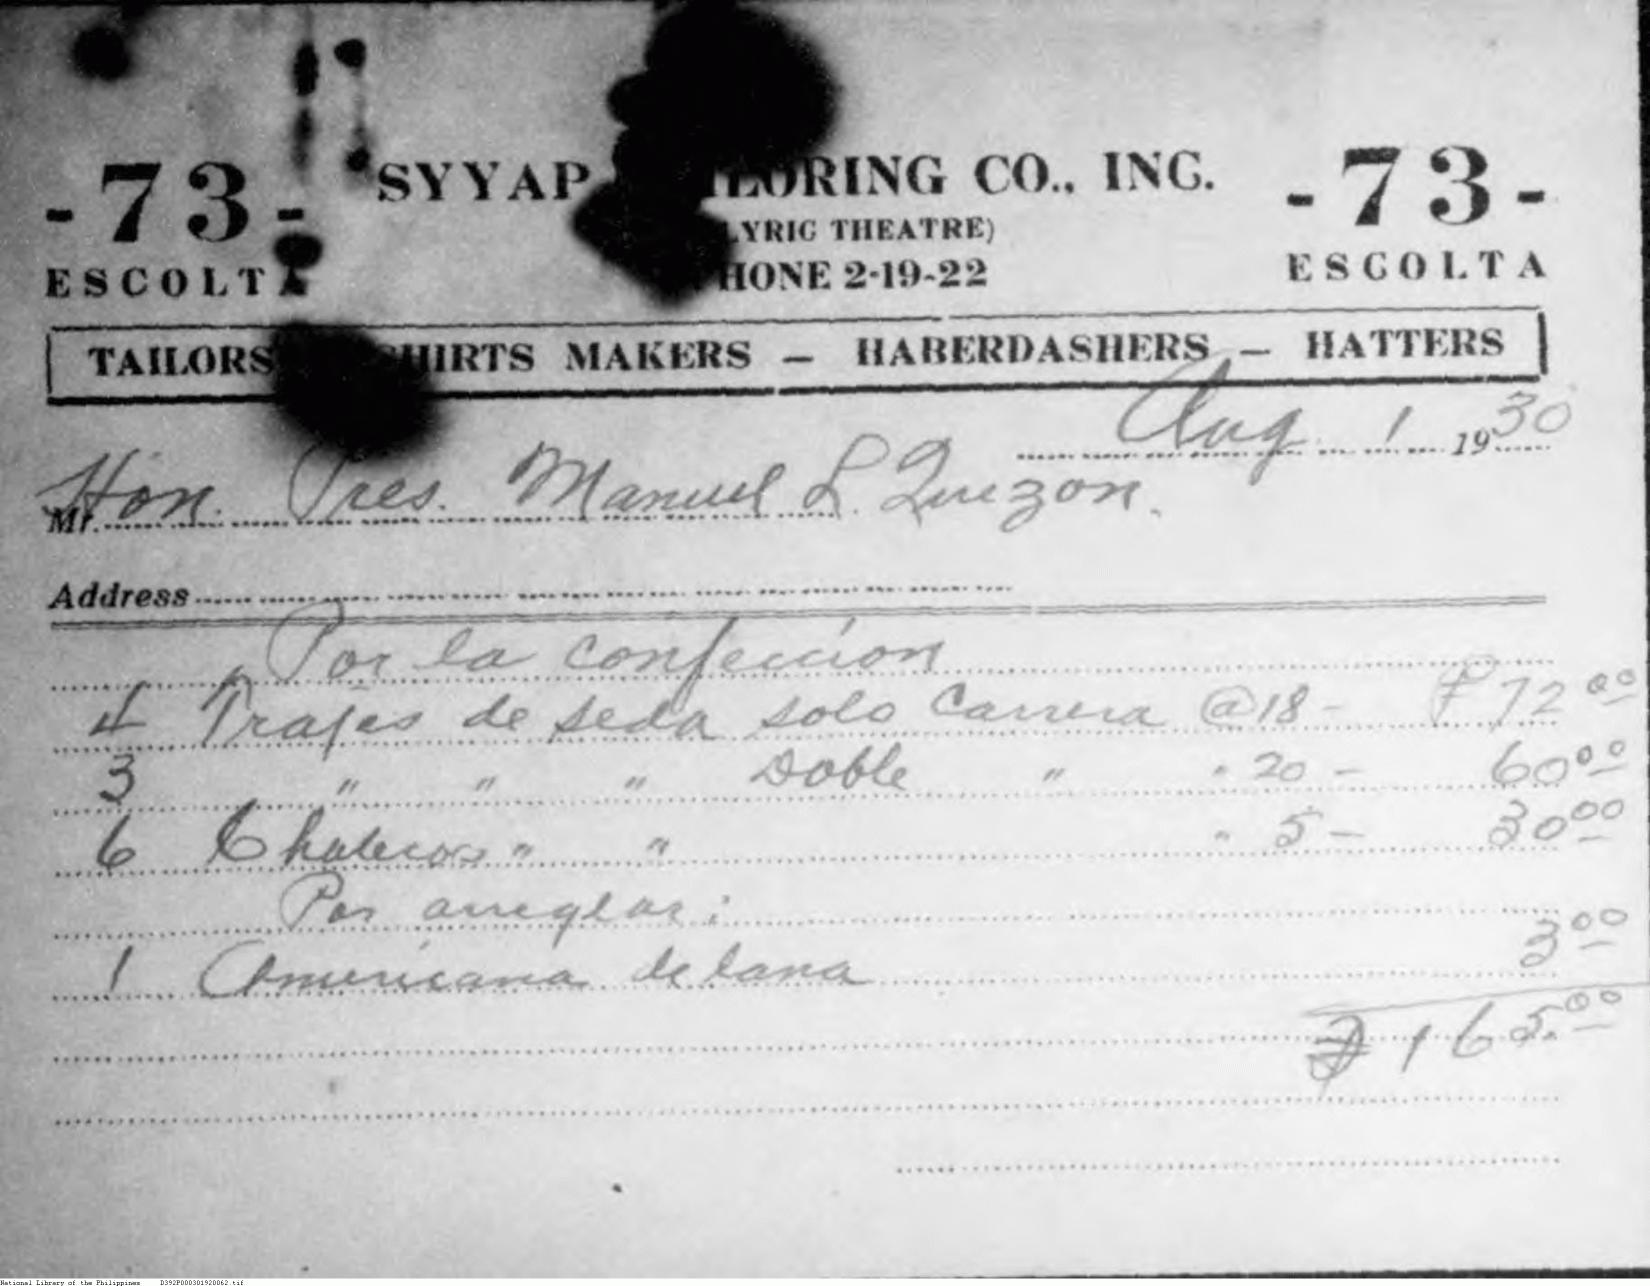 -73- SYYAP TAILORING CO., INC. -73-
LYRIC THEATRE)
ESCOLTA PHONE 2-19-22 ESCOLTA
TAILORS SHIRTS MAKERS — HABERDASHERS — HATTERS
Aug 1 1930
Mr. Hon. Pres. Manuel L. Quezon.
Address
Por la confeccion
4 Trajes de seda solo Carrera @ 18 - ₱ 72 00
3 " " " Doble " " 20 - 60 00
6 Chalecos " " " 5 - 30 00
Por arreglar:
1 Americana de lana 3 00
₱ 165.00
National Library of the Philippines D392P000301920062.tif